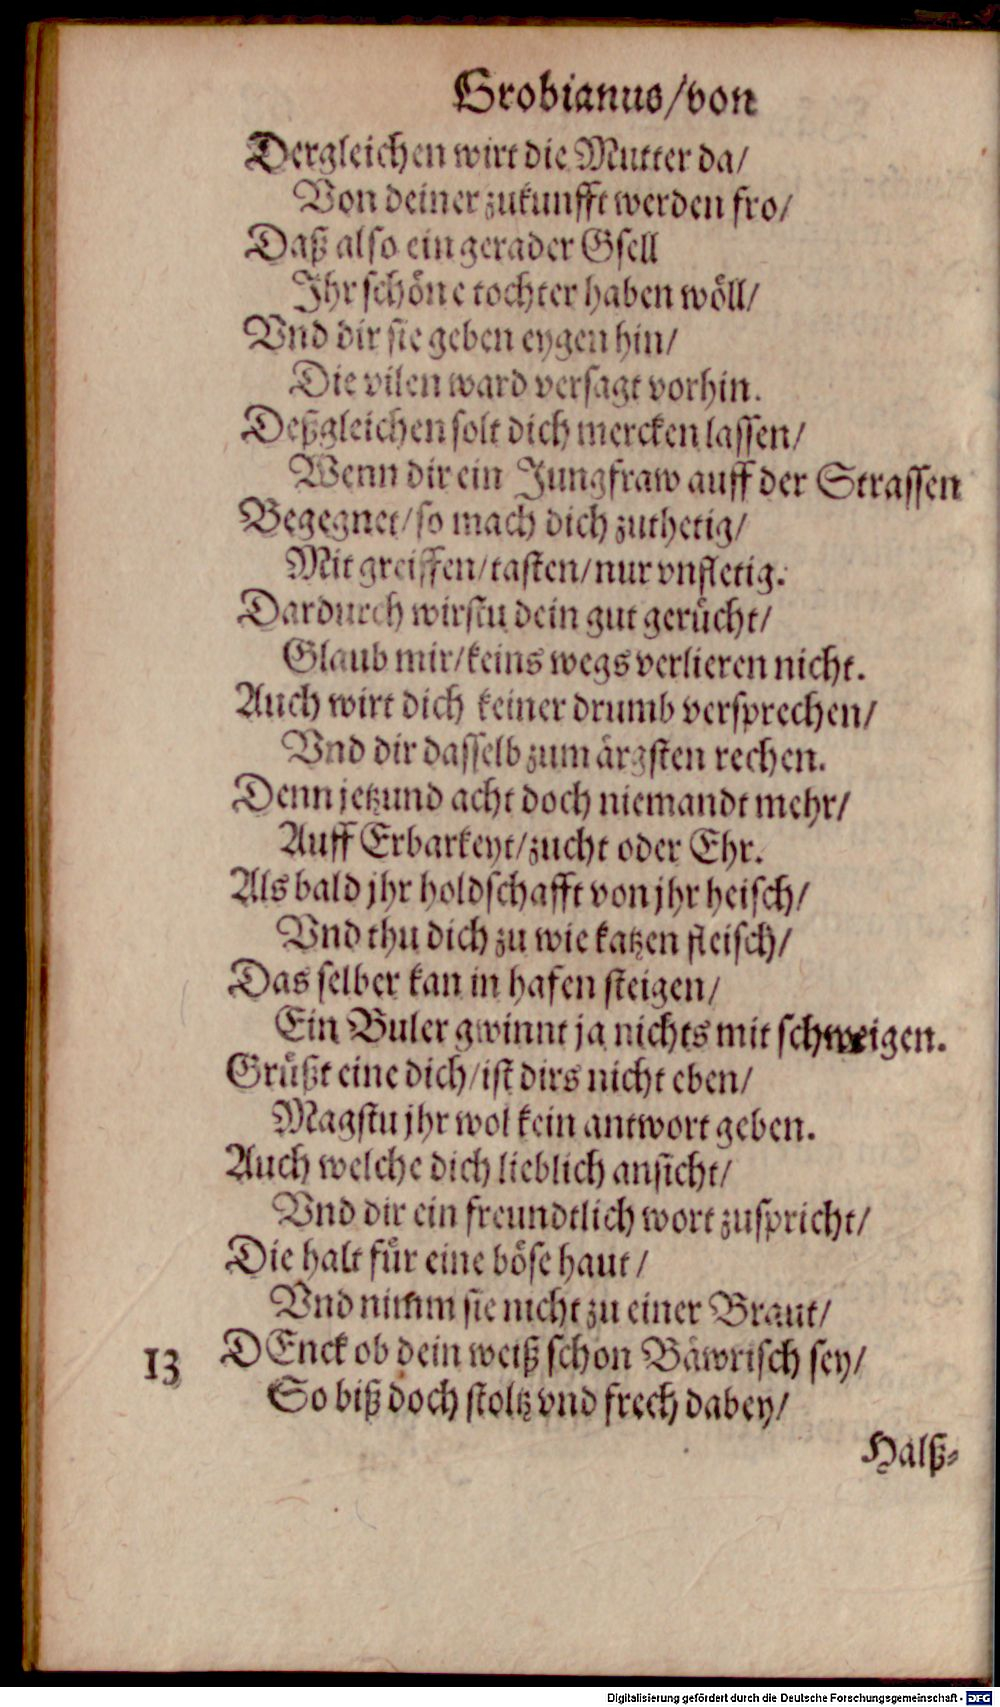 Grobianus/von
Dergleichen wirt die Mutter da/
Von deiner zukunfft werden fro/
Daß also ein gerader Gsell
Jhr schöne tochter haben wöll/
Vnd dir sie geben eygen hin/
Die vilen ward versagt vorhin.
Deßgleichen solt dich mercken lassen/
Wenn dir ein Jungfraw auff der Strassen
Begegnet/so mach dich zuthetig/
Mit greiffen/tasten/nur vnfletig.
Dardurch wirstu dein gut gerücht/
Glaub mir/keins wegs verlieren nicht.
Auch wirt dich keiner drumb versprechen/
Vnd dir dasselb zum ärgsten rechen.
Denn jetzund acht doch niemandt mehr/
Auff Erbarkeyt/zucht oder Ehr.
Als bald jhr holdschafft von jhr heisch/
Vnd thu dich zu wie katzen fleisch/
Das selber kan in hafen steigen/
Ein Buler gwinnt ja nichts mit schweigen.
Grüßt eine dich/ist dirs nicht eben/
Magstu jhr wol kein antwort geben.
Auch welche dich lieblich ansicht/
Vnd dir ein freundtlich wort zuspricht/
Die halt für eine böse haut/
Vnd nimm sie nicht zu einer Braut/
13 DEnck ob dein weiß schon Bäwrisch sey/
So biß doch stoltz vnd frech dabey/
Halß-
Digitalisierung gefördert durch die Deutsche Forschungsgemeinschaft - DFG